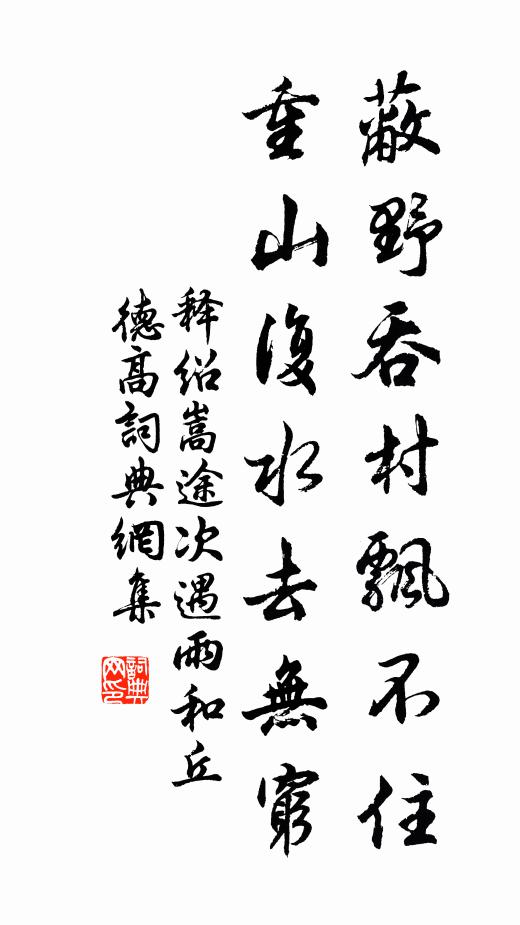 蔽野吞村飄不住
重山復水去無窮
释绍嵩途次遇雨和丘
德高詞典網集
詞典网